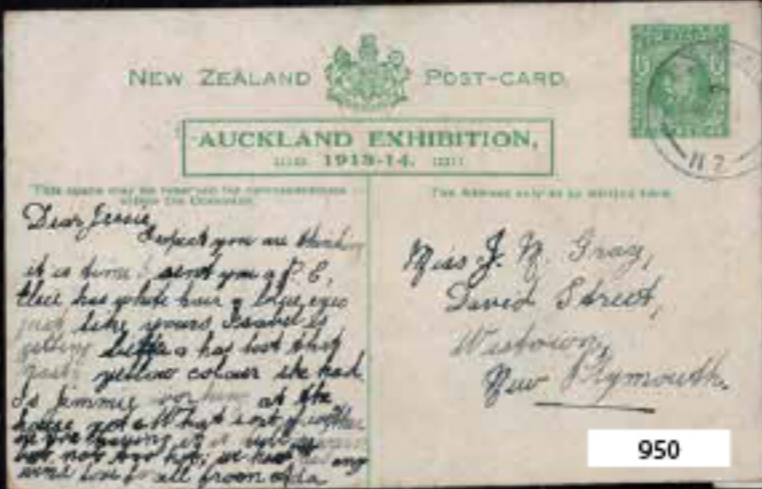 NEW ZEALAND POST-CARD.
AUCKLAND EXHIBITION,
1913-14.
This space may be reserved for correspondence
within the Dominion.
The Address only to be written here.
Dear Jessie,
Expect you are thinking
it is time I sent you a P.C,
has white hair & blue eyes
just like yours, Isabel is
getting better & has lost that
nasty yellow colour she had.
Is Jimmie working at the
house yet & What sort of weather
are you having it is
but not too hot; we have had any
wind love to all from Ada
Miss J. N. Gray,
David Street,
Westown,
New Plymouth.
117
950